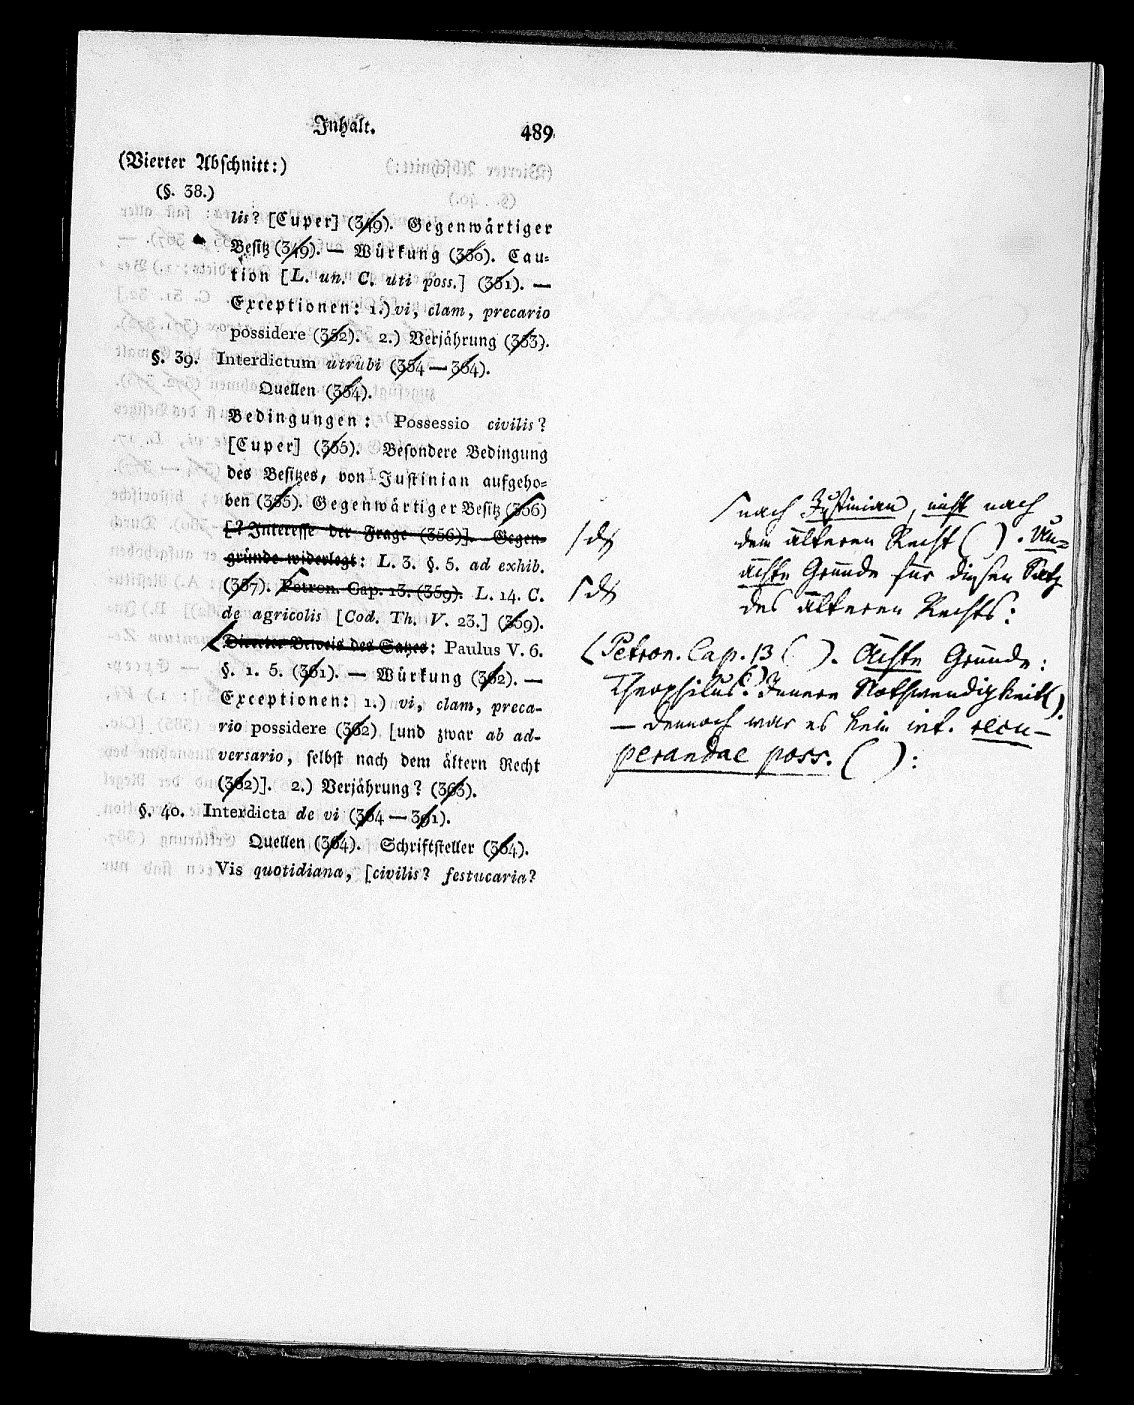 Inhalt. 489
(Vierter Abschnitt:)
(§. 38.)
lis? [Cuper] (349). Gegenwärtiger
Besitz (349). — Würkung (350). Cau-
tion [L. un. C. uti poss.] (351). —
Exceptionen: 1.) vi, clam, precario
possidere (352). 2.) Verjährung (353).
§. 39. Interdictum utrubi (354 — 364).
Quellen (354).
Bedingungen: Possessio civilis?
[Cuper] (355). Besondere Bedingung
des Besitzes, von Justinian aufgeho-
ben (355). Gegenwärtiger Besitz (356)
[? Interesse der Frage (356)]. Gegen-
gründe widerlegt: L. 3. §. 5. ad exhib.
(357). Petron. Cap. 13. (359). L. 14. C.
de agricolis [Cod. Th. V. 23.] (359).
Directer Beweis des Satzes: Paulus V. 6.
§. 1. 5. (361). — Würkung (362). —
Exceptionen: 1.) vi, clam, preca-
rio possidere (362) [und zwar ab ad-
versario, selbst nach dem ältern Recht
(362)]. 2.) Verjährung? (363).
§. 40. Interdicta de vi (364 — 391).
Quellen (364). Schriftsteller (364).
Vis quotidiana, [civilis? festucaria?
nach Justinian, nicht nach
dem älteren Recht ( ). Un-
ächte Gründe für diesen Satz
des älteren Rechts:
Petron. Cap. 13 ( ). Ächte Gründe:
Theophilus ( ). Innere Nothwendigkeit ( ).
— dennoch war es kein int. recu-
perandae poss. ( ):